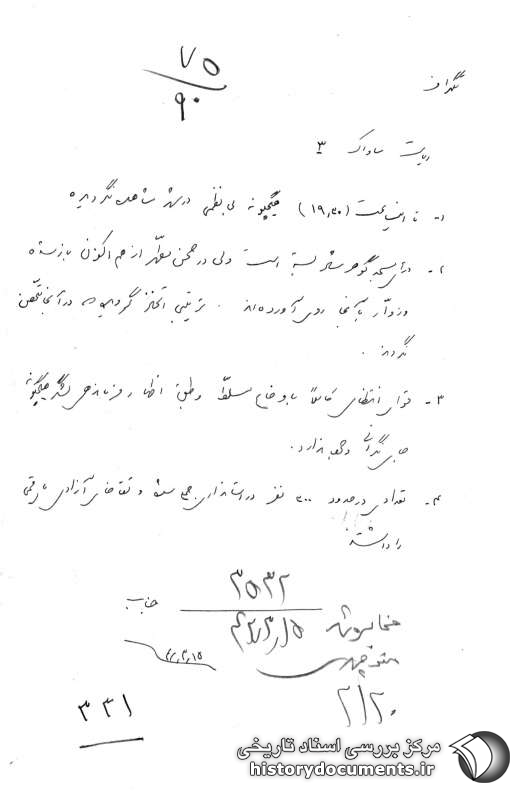 ۷۵
۹۰
تلگراف
ریاست ساواک ۳
۱- تا این ساعت (۱۹٫۳۰) هیچگونه بی‌نظمی در شهر مشاهده نگردیده
۲- درب مسجد گوهرشاد بسته است ولی در صحن مطهر از هم اکنون باز شده
و زوار به آنجا روی آورده‌اند . ترتیبی اتخاذ گردیده که در آنجا تحصن
نگردند .
۳- قوای انتظامی کاملاً به اوضاع مسلط و طبق اظهار فرمانده لشگر هیچگونه
جای نگرانی وجود ندارد .
۴- تعدادی در حدود ۲۰۰ نفر در استانداری جمع شده و تقاضای آزادی
را داشتند
۳۵۳۲
۴۲٫۳٫۱۵
مخابره شد
۴۲٫۳٫۱۵
۲/۲۰
۳۳۱
مرکز بررسی اسناد تاریخی
historydocuments.ir